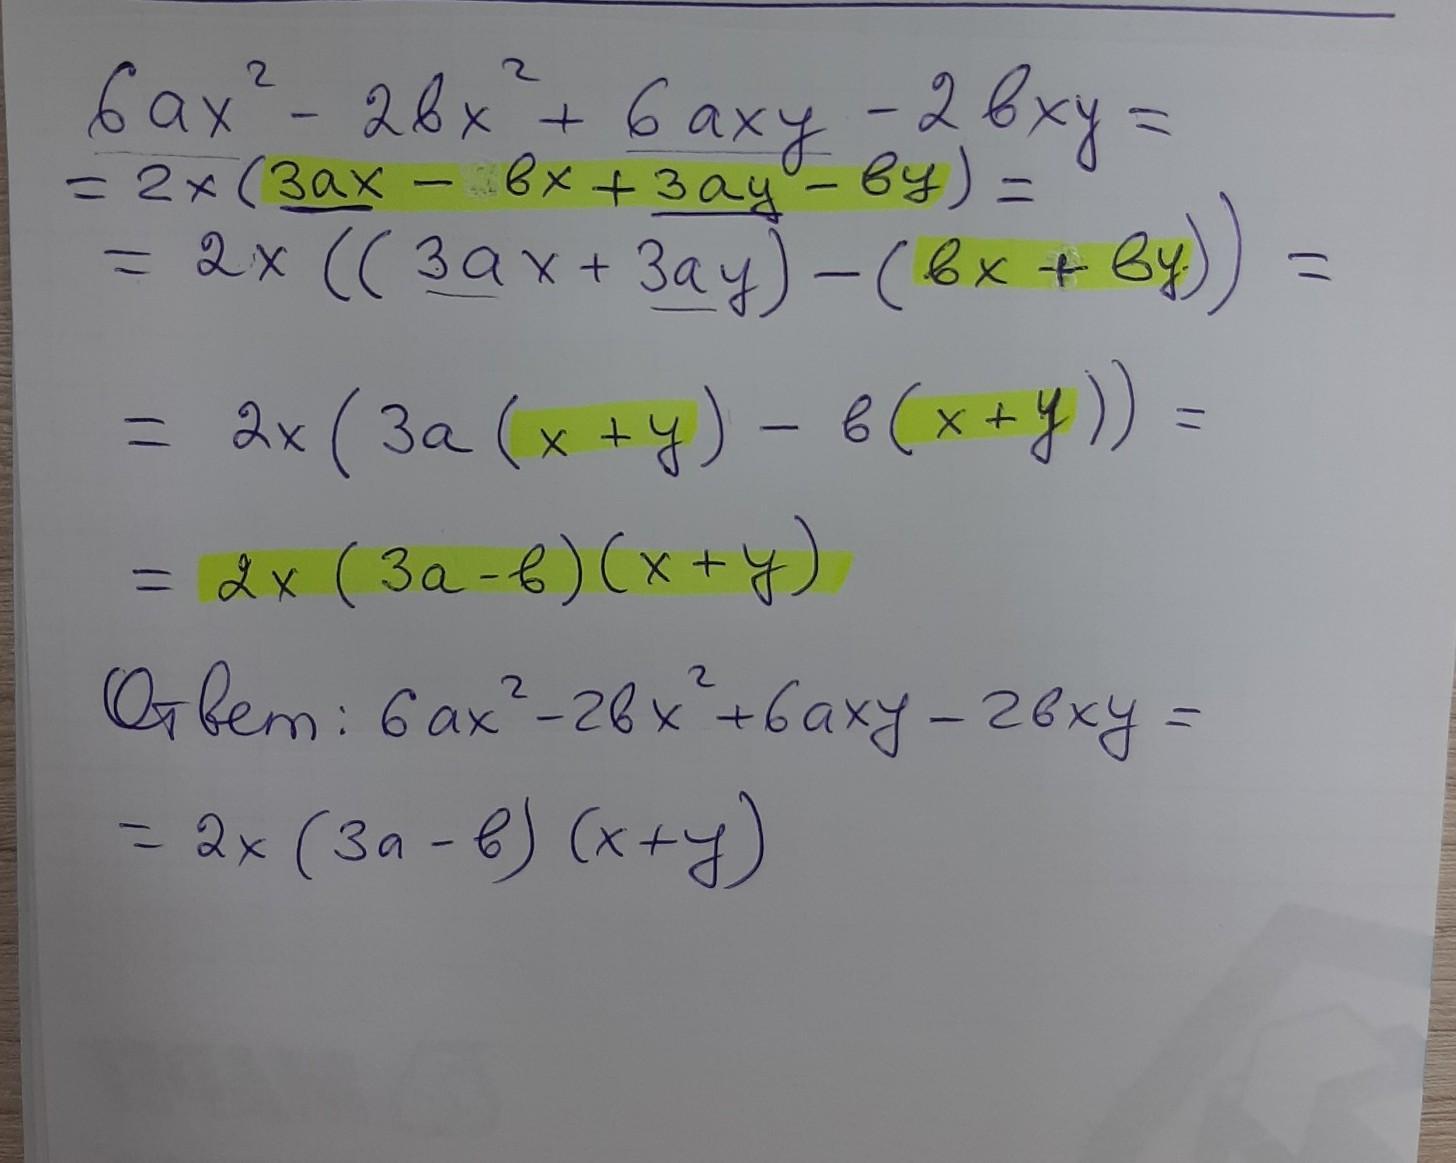 6ax² - 2вx² + 6axy - 2вxy =
= 2x(3ax - вx + 3ay - вy) =
= 2x((3ax + 3ay) - (вx + вy)) =
= 2x(3a(x + y) - в(x + y)) =
= 2x(3a - в)(x + y)
Ответ: 6ax² - 2вx² + 6axy - 2вxy =
= 2x(3a - в)(x + y)